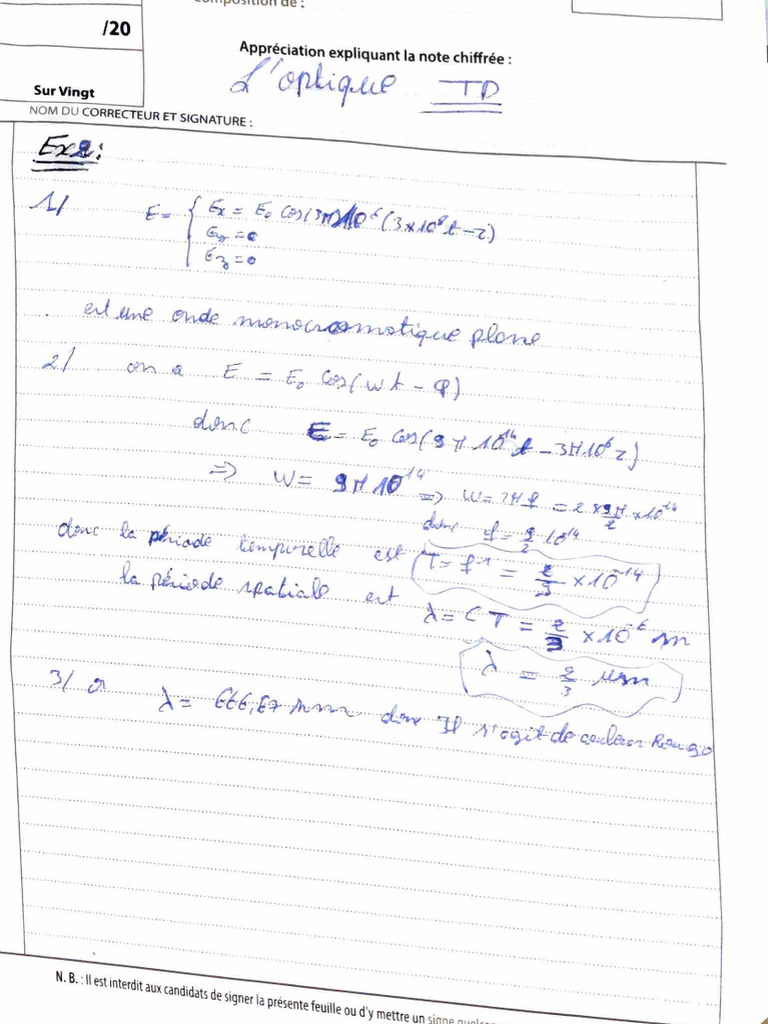 composition de :
/20
Appréciation expliquant la note chiffrée :
L'optique TD
Sur Vingt
NOM DU CORRECTEUR ET SIGNATURE :
Ex2:
1/ E = { Ex = E₀ cos(3π10⁶(3×10⁸t-z)
Ey = 0
Ez = 0
est une onde monocromatique plane
2/ on a E = E₀ cos(wt - φ)
donc E = E₀ cos(9π10¹⁴t - 3π10⁶z)
⇒ w = 9π10¹⁴ ⇒ w = 2πf = 2×9π/2×10¹⁴
donc f = 9/2 10¹⁴
donc la période temporelle est T = f⁻¹ = 2/9 ×10⁻¹⁴
la période spatiale est λ = CT = 2/3 ×10⁻⁶ m
λ = 2/3 μm
3/ a λ = 666,67 nm donc Il s'agit de couleur Rouge
N. B. : Il est interdit aux candidats de signer la présente feuille ou d'y mettre un signe